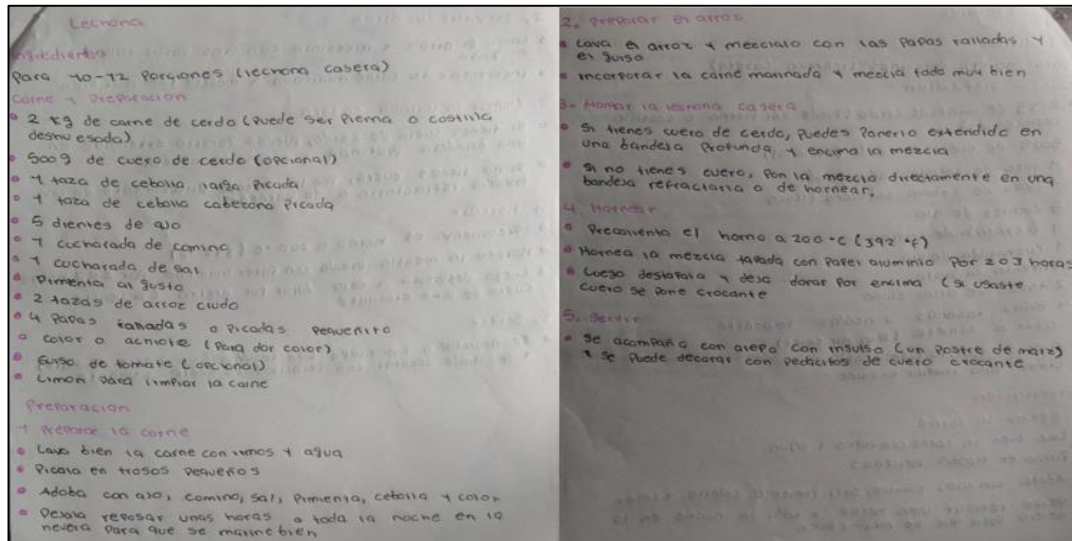 Lechona
Ingredientes
Para 10-12 Porciones (lechona casera)
Carne y Preparacion
2 kg de carne de cerdo (Puede ser Pierna o costilla
deshuesada)
500g de cuero de cerdo (opcional)
1 taza de cebolla larga Picada
1 taza de cebolla cabezona Picada
5 dientes de ajo
1 cucharada de comino
1 cucharada de sal
Pimenta al gusto
2 tazas de arroz crudo
4 Papas ralladas o Picadas Pequeñito
Color o achiote (Para dar color)
Guiso de tomate (opcional)
Limon para limpiar la carne
Preparacion
1 Preparar la carne
Lava bien la carne con limos y agua
Picala en trosos Pequeños
Adoba con ajo, comino, sal, Pimenta, cebolla y color
Dejala reposar unas horas o toda la noche en la
nevera para que se marine bien
2. Preparar el arroz
Lava el arroz y mezclalo con las papas ralladas y
el guiso
Incorporar la carne marinada y mezcla todo muy bien
3. Montar la lechona casera
Si tienes cuero de cerdo, Puedes Ponerlo extendido en
una bandeja Profunda, y encima la mezcla
Si no tienes cuero, Pon la mezcla directamente en una
bandeja refractaria o de hornear.
4. Hornear
Precalienta el horno a 200 °C (392 °F)
Hornea la mezcla tapada con Papel aluminio Por 2 o 3 horas
Luego destapala y deja dorar Por encima (si usaste
cuero se pone crocante
5. Servir
Se acompaña con arepa con insulso (un Postre de maiz)
y se Puede decorar con pedacitos de cuero crocante